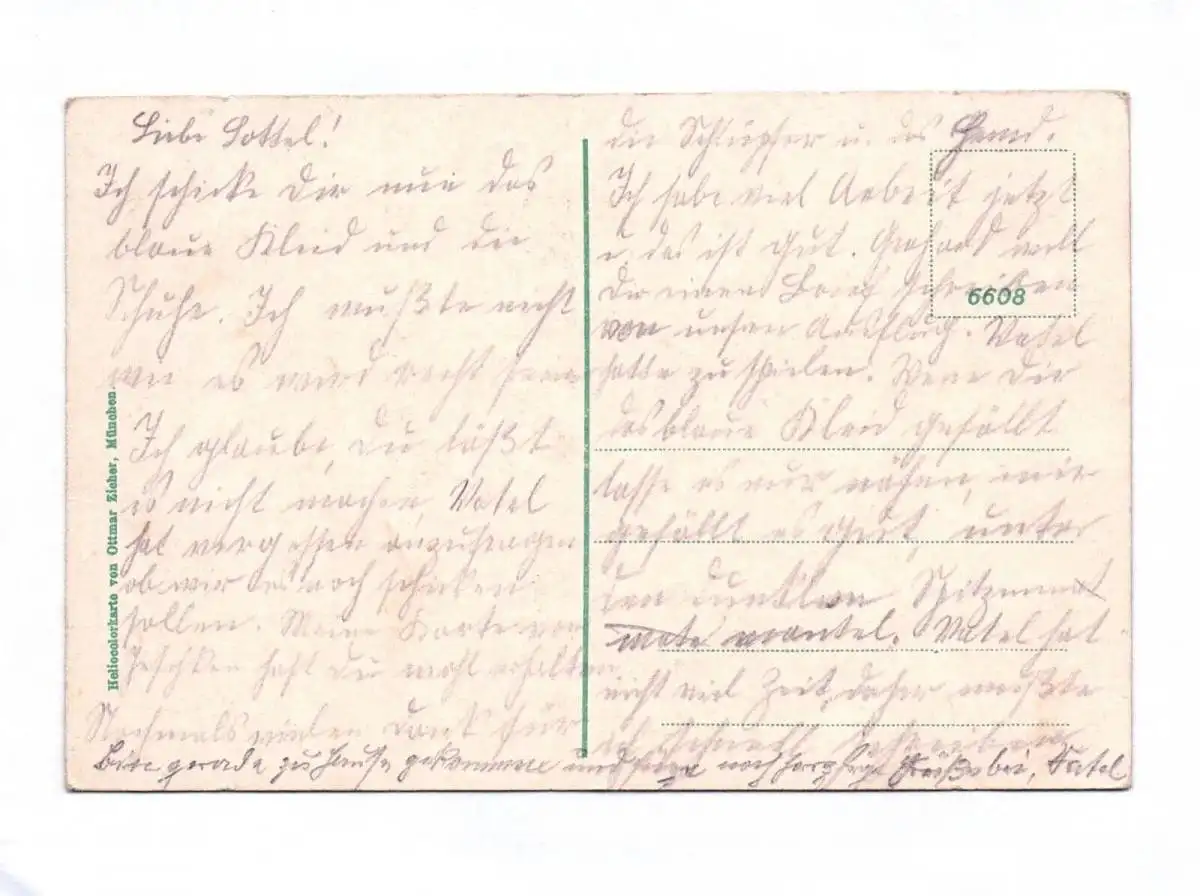 Liebe Lottel!
Ich schicke Dir nun das
blaue Kleid und die
Schuhe. Ich mußte nicht
wie es wird recht sein
Ich glaube, du läßt
es nicht machen, Vatel
hat vergessen anzufragen
ob wir es noch schicken
sollen. Meine Karte vom
Jeschken hast Du wohl erhalten
Nochmals vielen Dank für
die Schlüpfer u. das Hemd.
Ich habe viel Arbeit jetzt
u. das ist gut. Gerhard will
Dir einen Brief schreiben
von unsern Ausflug. Vatel
hatte zu spielen. Wenn Dir
das blaue Kleid gefällt
lasse es nur nähen, mir
gefällt es gut, unter
den dunklen
mantel. Vatel hat
nicht viel Zeit, daher mußte
ich schnell schreiben
Bin gerade zu Hause gekommen und füge noch herzliche Grüße bei, Vatel
Heliocolorkarte von Ottmar Zieher, München.
6608